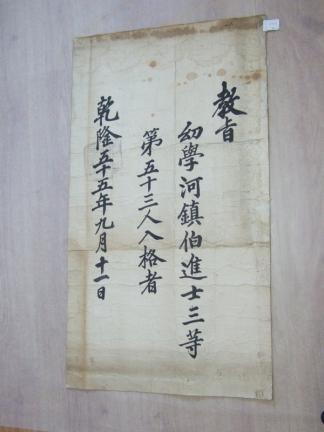 教旨
幼學河鎮伯進士三等
第五十三人入格者
乾隆五十五年九月十一日